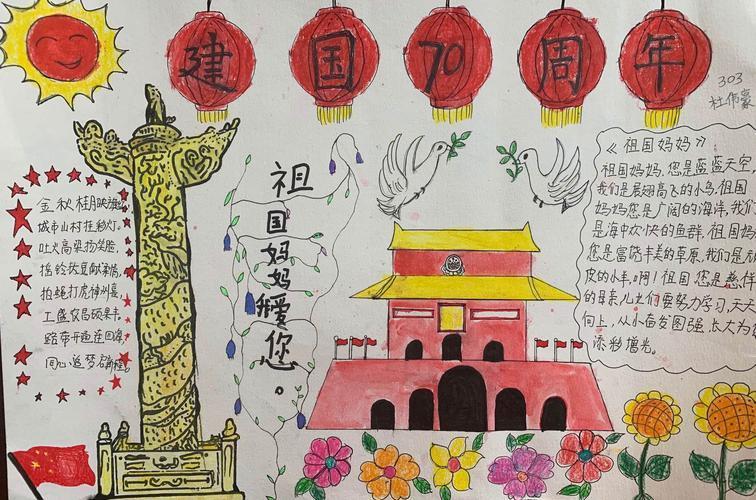 建国70周年
303
杜伟豪
祖国妈妈我爱您。
金秋桂月
城市山村挂彩灯。
吐火高梁扬笑脸,
拍蝇打虎神州晏,
工盛农昌硕果丰,
同心追梦
《祖国妈妈》
祖国妈妈,您是蓝蓝天空,
我们是展翅高飞的小鸟,祖国
妈妈您是广阔的海洋,我们
是海中欢快的鱼群,祖国妈
您是富饶丰美的草原,我们是
皮的小羊,啊!祖国您是慈祥
的母亲儿女们要努力学习,天天
向上,从小奋发图强,长大为
添彩增光。